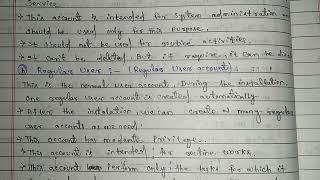 Service
→ This account is intended for System administration
should be used only for this purpose.
→ It should not be used for routine activities
→ It can't be deleted. But if require, it can be
(b) Regulare User :- (Regular User account) :
This is the normal user account. During the installation
One regular user account is created automatically.
→ After the instalation we can create as many regular
user accounts as we need.
→ This account has moderate Privilege.
→ This account is intended for routine works.
→ This account Perform only the tasks for which it